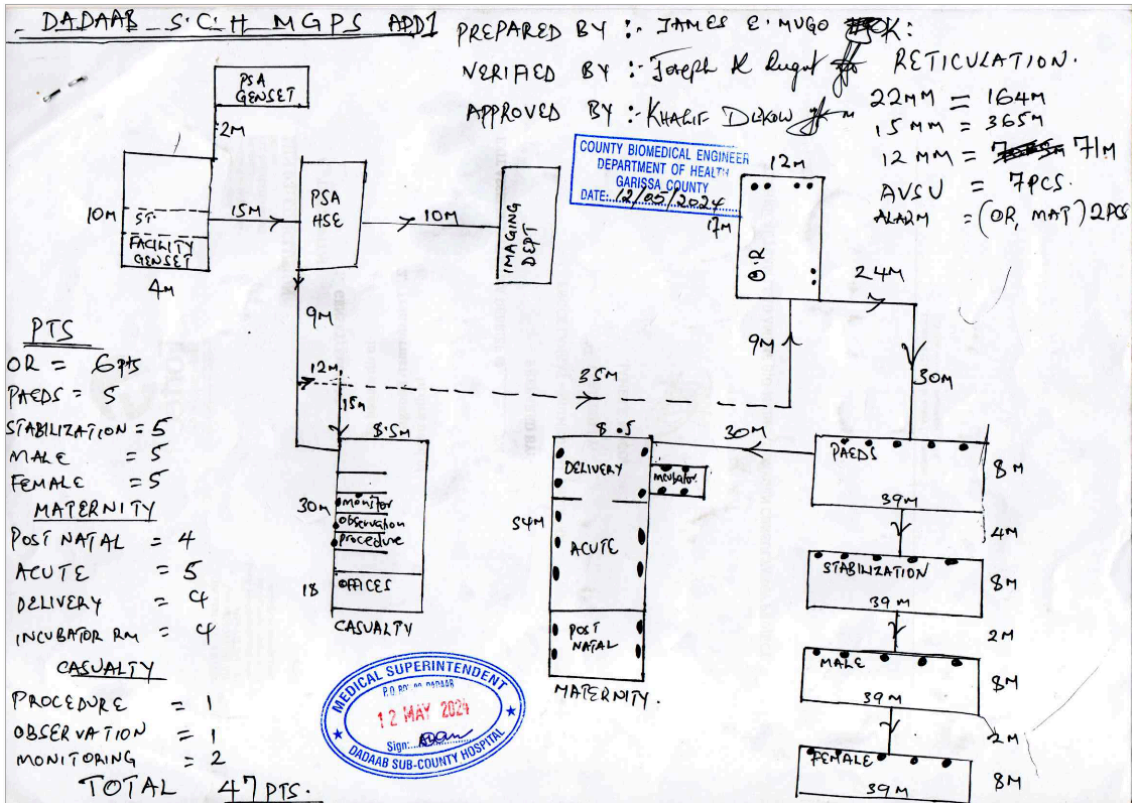 DADAAB S.C.H MGPS ADD1
PREPARED BY :- JAMES E. MUGO
VERIFIED BY :- Joseph K
APPROVED BY :- KHALIF
COUNTY BIOMEDICAL ENGINEER
DEPARTMENT OF HEALTH
GARISSA COUNTY
DATE: 12/05/2024
RETICULATION.
22MM = 164M
15MM = 365M
12MM = 71M
AVSU = 7PCS.
ALARM = (OR, MAT) 2PCS
PSA
GENSET
2M
10M
ST.
FACILITY
GENSET
4M
15M
PSA
HSE
10M
IMAGING
DEPT
12M
17M
O.R
24M
9M
30M
9M
12M
35M
15M
8.5M
30M
monitor
observation
procedure
18
OFFICES
CASUALTY
8.5
30M
DELIVERY
incubator
54M
ACUTE
POST
NATAL
MATERNITY.
PAEDS
8M
39M
4M
STABILIZATION
8M
39M
2M
MALE
8M
39M
2M
FEMALE
8M
39M
PTS
OR = 6pts
PAEDS = 5
STABILIZATION = 5
MALE = 5
FEMALE = 5
MATERNITY
POST NATAL = 4
ACUTE = 5
DELIVERY = 4
INCUBATOR RM = 4
CASUALTY
PROCEDURE = 1
OBSERVATION = 1
MONITORING = 2
TOTAL 47 PTS.
MEDICAL SUPERINTENDENT
12 MAY 2024
Sign:
DADAAB SUB-COUNTY HOSPITAL